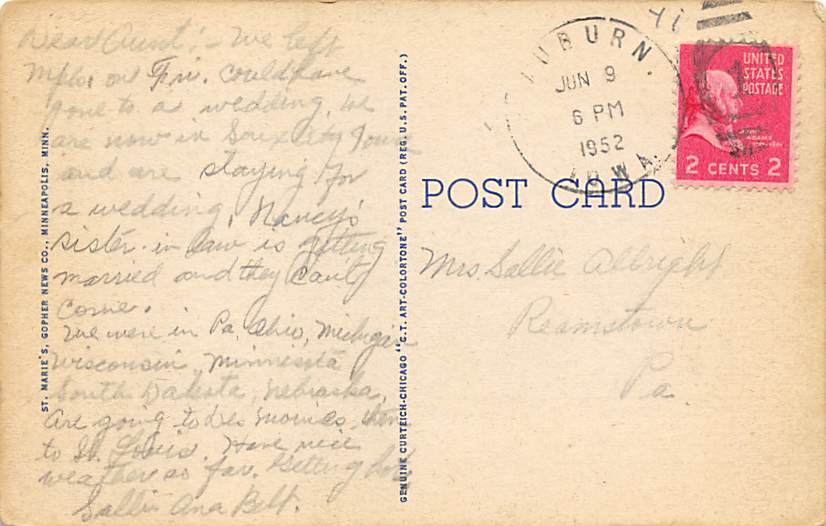 Dear Aunt:- We left
Mpls. on Fri. Could have
gone to a wedding. We
are now in Soux City Iowa
and are staying for
a wedding. Nancy's
sister-in-law is getting
married and they can't
come.
We were in Pa, Ohio, Michigan
Wisconsin, Minnesota
South Dakota, Nebraska,
Are going to Des Moines, then
to St. Louis. Have nice
weather so far. Getting hot
Sallie Ana Belt.
ST. MARIE'S, GOPHER NEWS CO., MINNEAPOLIS, MINN.
GENUINE CURTEICH-CHICAGO "C.T. ART-COLORTONE" POST CARD (REG. U.S. PAT. OFF.)
AUBURN,
JUN 9
6 PM
1952
IOWA
UNITED
STATES
POSTAGE
ADAMS
2 CENTS 2
POST CARD
Mrs Sallie Albright
Reamstown
Pa.